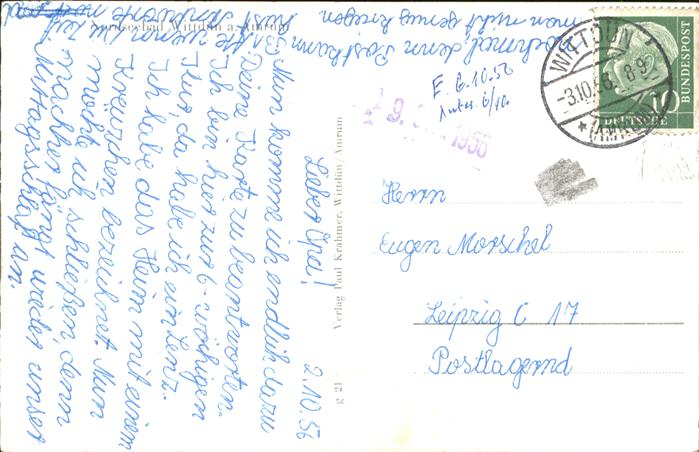 Nordseebad Wittdün a. Amrum
2.10.56
Lieber Opa!
Nun komme ich endlich dazu
Deine Karte zu beantworten.
Ich bin hier zur 6-wöchigen
Kur, da habe ich ein Lenz.
Ich habe das Heim mit einem
Kreuzchen bezeichnet. Nun
möchte ich schließen, denn
nachher fängt wieder unsere
Mittagsschlaf an.
nochmal denn Postkarten
man nicht genug kriegen
E. 6.10.56
Antw. 6/10.
1956
WITTDÜN
-3.10.56. 8-9
(AMRUM)
10
DEUTSCHE
BUNDESPOST
g 21
Verlag Paul Krahmer, Wittdün/Amrum
Herrn
Eugen Morschel
Leipzig C 17
Postlagernd